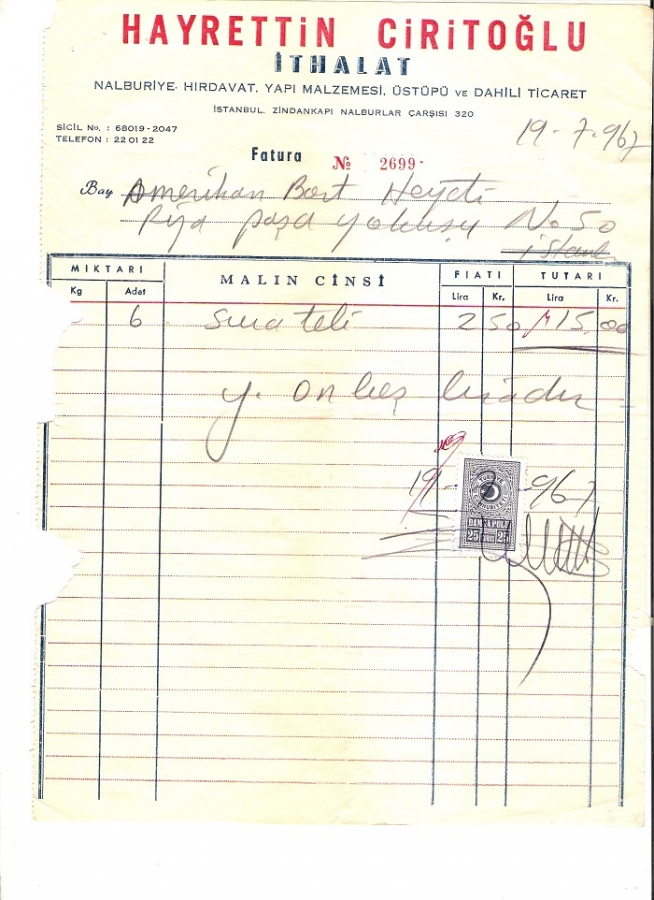 HAYRETTİN CİRİTOĞLU
İTHALAT
NALBURİYE. HIRDAVAT, YAPI MALZEMESİ, ÜSTÜPÜ VE DAHİLİ TİCARET
İSTANBUL. ZİNDANKAPI NALBURLAR ÇARŞISI 320
SİCİL No. : 68019-2047
TELEFON : 22 01 22
19-7-967
Fatura № 2699-
Bay Amerikan Bort Heyeti
Rıza paşa yokuşu No 50
İstanb.
MİKTARI MALIN CİNSİ FİATI TUTARI
Kg Adet Lira Kr. Lira Kr.
6 teli 250 15,00
Y. on beş liradır
19 967
TÜRKİYE
DAMGA PULU
25 25